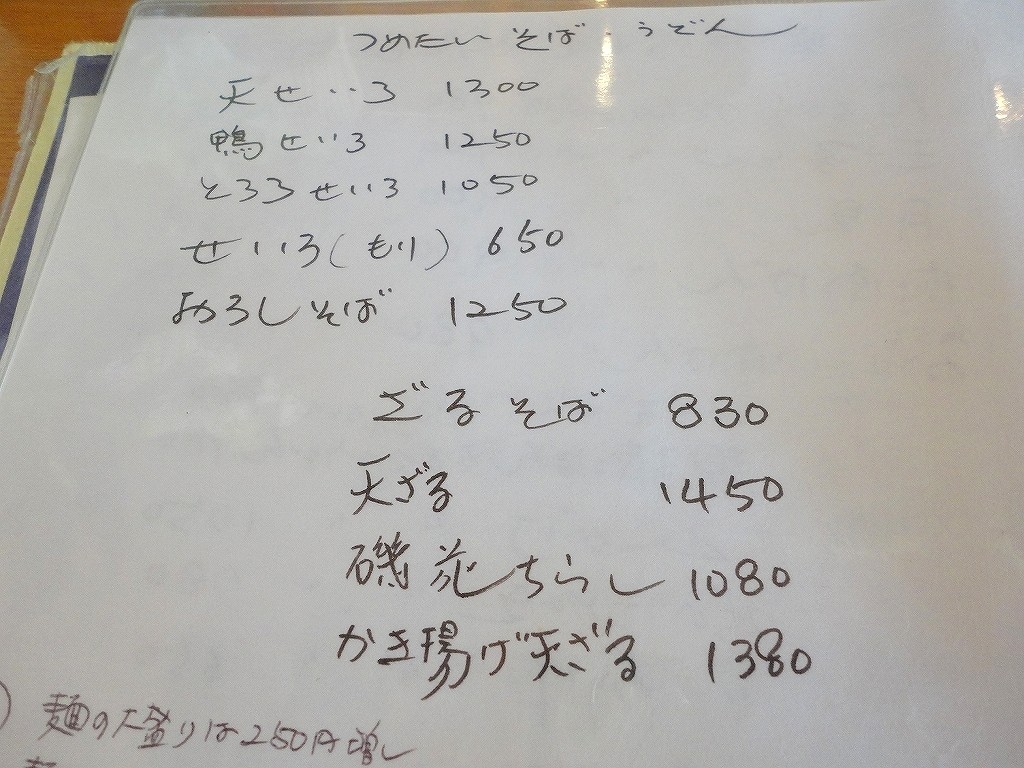 つめたい そば・うどん
天せいろ 1300
鴨せいろ 1250
とろろせいろ 1050
せいろ(もり) 650
おろしそば 1250
ざるそば 830
天ざる 1450
磯花ちらし 1080
かき揚げ天ざる 1380
麺の大盛りは250円増し